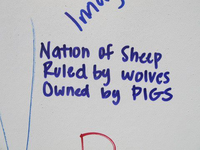 Nation of Sheep
Ruled by wolves
Owned by PIGS